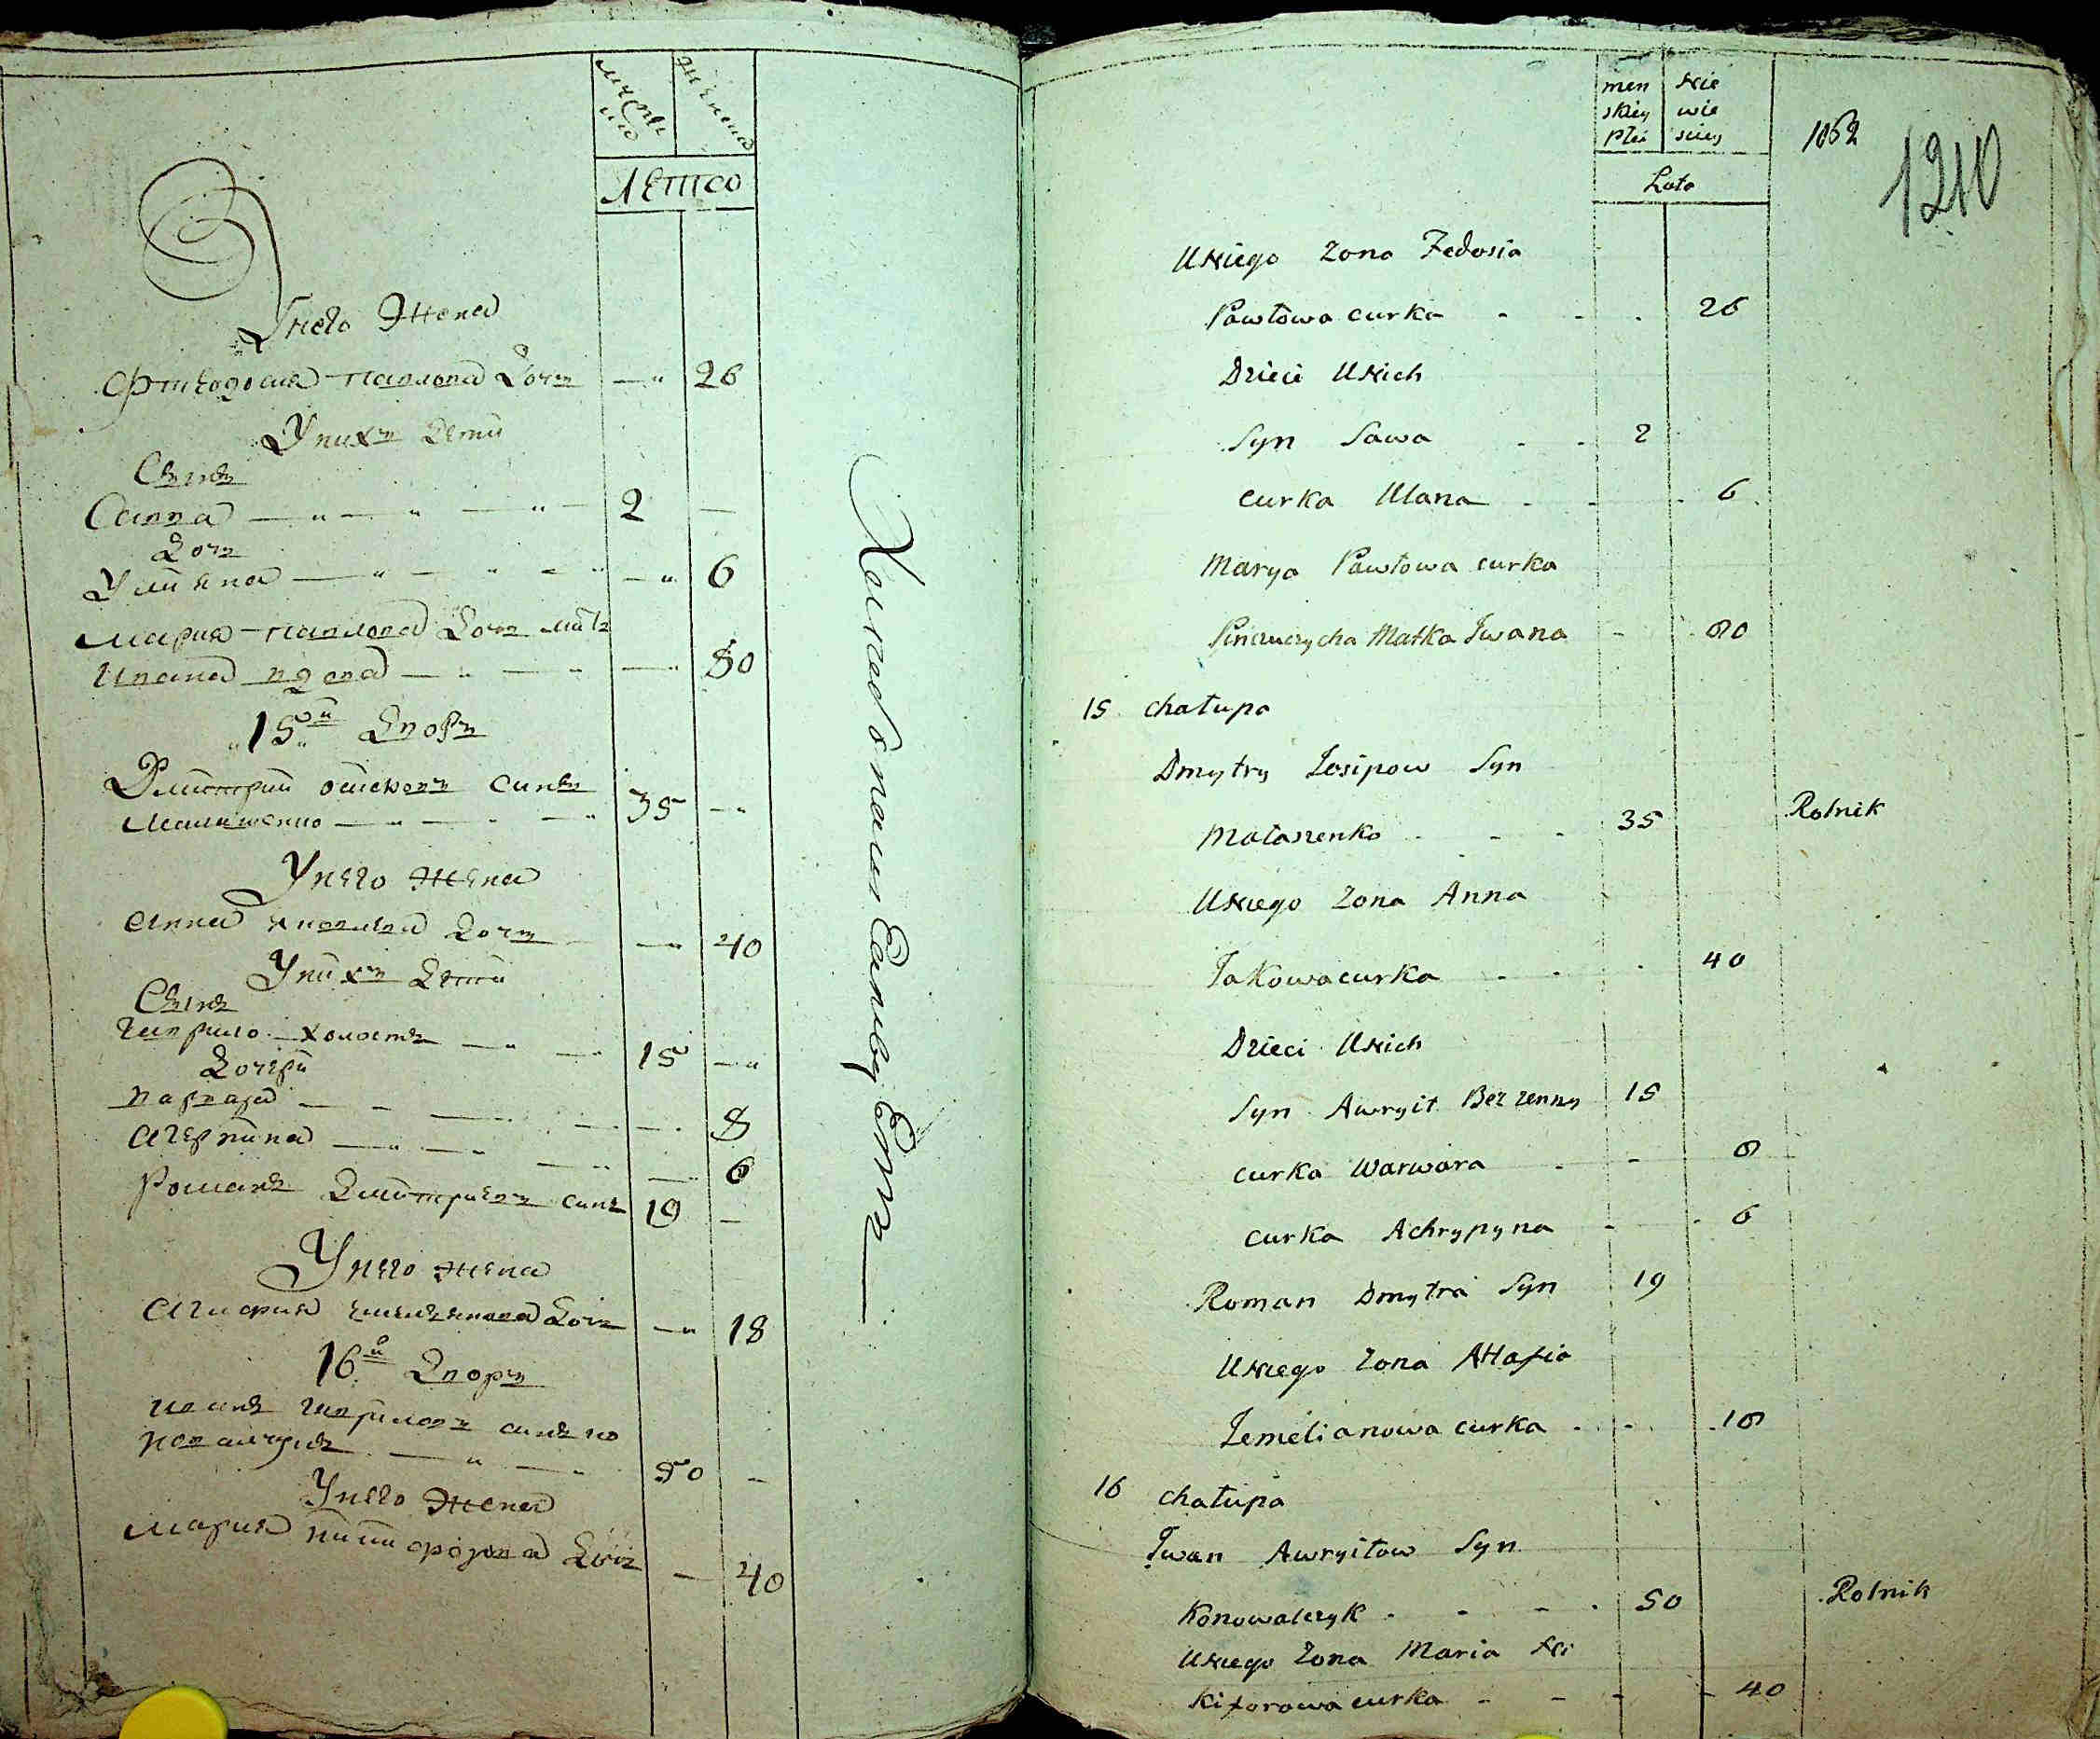 мужеска
женска
лето
У него жена
Фтеодосия павлова дочъ —„ 26
У нихъ дети
Сынъ
Савва — „ — „ — „ — 2 —
Дочъ
Улияна — „ — „ — „ —„ 6
Мария павлова дочъ мать
Ивана вдова — „ — — —„ 80
„15„ой дворъ
Дмитрий осиповъ синъ
Малашенко — „ — „ — „ 35 —„
У него жена
Анна яковлева дочъ —„ 40
У нихъ дети
Сынъ
Гаврило холостъ — „ — „ 15 —„
Дочери
Варвара — — — — 8
Агерпина — „ — „ — „ — 6
Романъ Дмитриевъ синъ 19 —
У него жена
Агафия емелянова дочъ —„ 18
16й дворъ
Иванъ Гавриловъ синъ ко
новалчукъ — „ — „ 50 —
У него жена
Мария никифорова дочъ — 40
men skiey płci
Nie wie sciey
1062
1210
Lata
U Niego Zona Fedosia
Pawłowa curka - - . 26
Dzieci U Nich
Syn Sawa - - 2
curka Ulana - - - 6
Marya Pawłowa curka
Matka Iwana - - 80
15 chałupa
Dmytry Josipow Syn
Małaszenko - - - 35 Rolnik
U Niego Zona Anna
Jakowa curka - - . 40
Dzieci U Nich
Syn Awryił Bez zenny 15
curka Warwara - - 8
curka Achrypyna - - 6
Roman Dmytra Syn 19
U Niego Zona AHafia
Jemelianowa curka - - . 18
16 chałupa
Iwan Awryiłow Syn
Konowalczyk - - - . 50 Rolnik
U Niego Zona Maria Ni
kiforowa curka - - - - 40